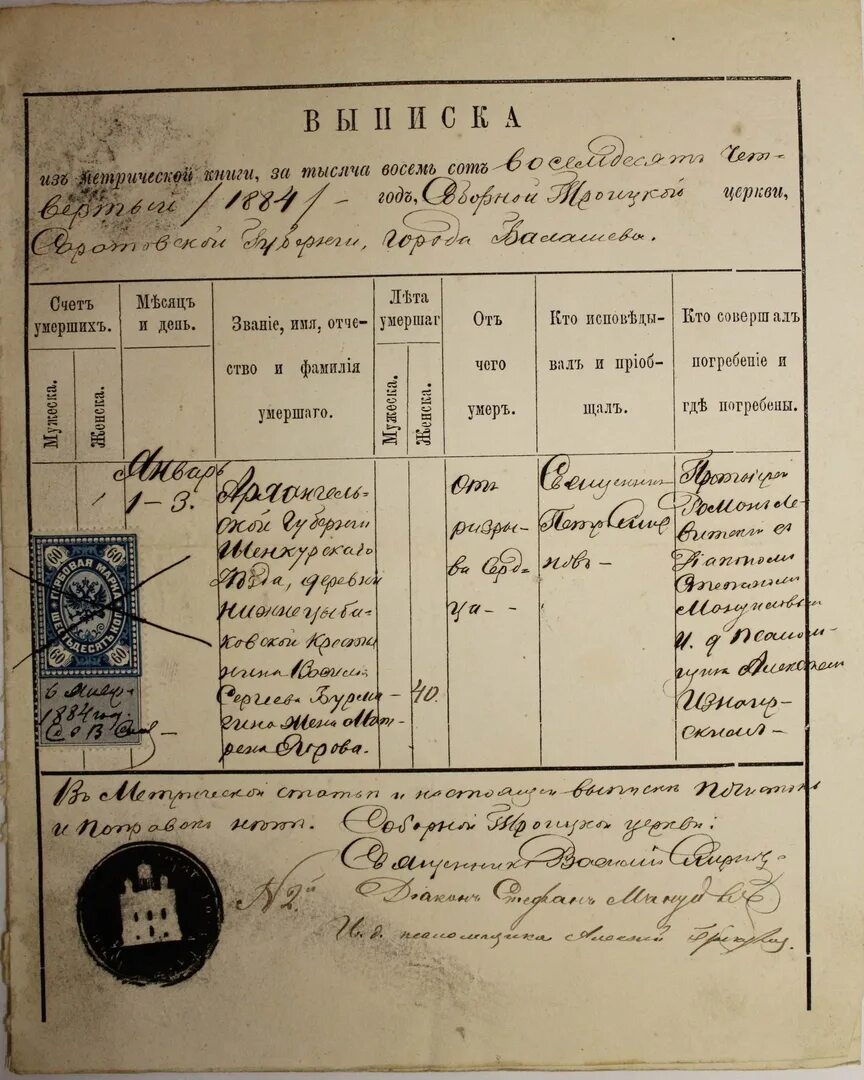 ВЫПИСКА
изъ метрической книги, за тысяча восемь сотъ восемдесятъ Чет-
вертый /1884/- годъ, Соборной Троицкой церкви,
Саратовской Губерніи, города Балашева.
Счетъ умершихъ.
Мужеска.
Женска.
Мѣсяцъ и день.
Званіе, имя, отче-
ство и фамилія
умершаго.
Лѣта умершаг
Мужеска.
Женска.
Отъ
чего
умеръ.
Кто исповѣды-
валъ и пріоб-
щалъ.
Кто совершалъ
погребеніе и
гдѣ погребены.
1
Январь
1-3.
Архангель-
ской Губерніи
Шенкурскаго
Уѣзда, деревни
Нижнецыба-
ковской Крестья
нина Василія
Сергеева Бурма-
гина Жена Мат-
рена Егорова.
40.
отъ
разры-
ва Серд-
ца--
Священникъ
Петръ
новъ-
Протоіерей
Романъ Ле-
витскій съ
Діакономъ
Стефаномъ
И. д Псалом-
щика Алексеемъ
60 60
ГЕРБОВАЯ МАРКА
ШЕСТЬДЕСЯТЪ КОП.
60 60
6 Янв.
1884 год.
Въ Метрической статьи и настоящей выписки почистокъ
и поправокъ нѣтъ. Соборной Троицкой церкви:
Священникъ Василій
№ 2й
Діаконъ Стефанъ
И. д. псаломщика Алексей